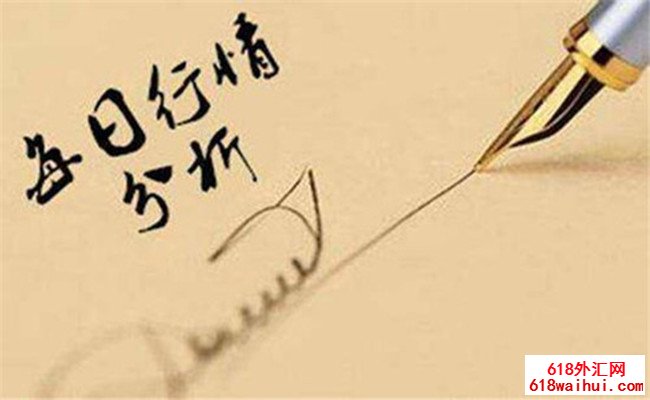 每日行情
分析
618外汇网
618waihui.com